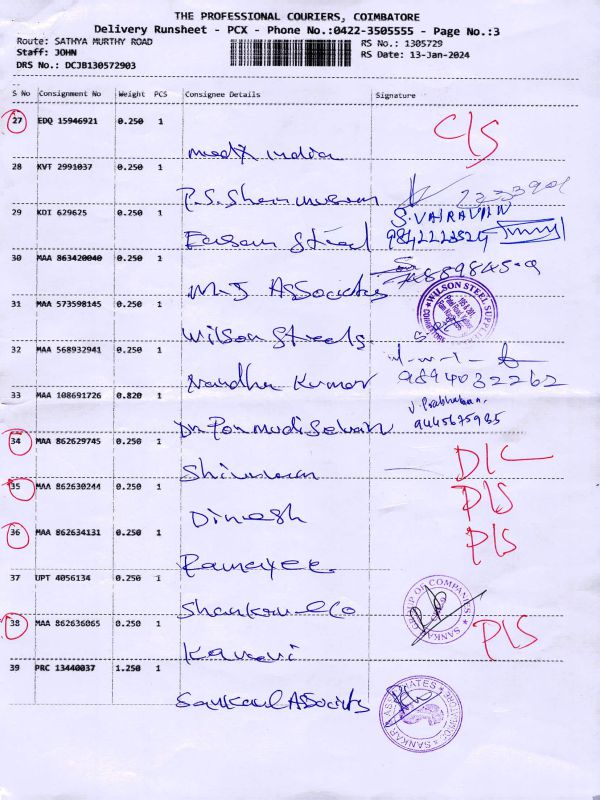 THE PROFESSIONAL COURIERS, COIMBATORE
Delivery Runsheet - PCX - Phone No.:0422-3505555 - Page No.:3
Route: SATHYA MURTHY ROAD
RS No.: 1305729
Staff: JOHN
RS Date: 13-Jan-2024
DRS No.: DCJB130572903
S No Consignment No Weight PCS Consignee Details Signature
27 EDQ 15946921 0.250 1
C/S
medX india
28 KVT 2991037 0.250 1
P.S.
29 KDI 629625 0.250 1
S. VAIRAVAN
Steel
30 MAA 863420040 0.250 1
M.J Associates
31 MAA 573598145 0.250 1
WILSON STEEL SUPPLIERS
Wilson Steels
32 MAA 568932941 0.250 1
Nandha Kumar
9894032262
33 MAA 108691726 0.820 1
V. Prabhakaran
9445675985
Dr. Ponmudi Selvan
34 MAA 862629745 0.250 1
D/C
35 MAA 862630244 0.250 1
D/S
Dinesh
36 MAA 862634131 0.250 1
D/S
37 UPT 4056134 0.250 1
SANKAR GROUP OF COMPANIES
& Co
38 MAA 862636065 0.250 1
D/S
39 PRC 13440037 1.250 1
Associates
SANKAR ASSOCIATES COIMBATORE